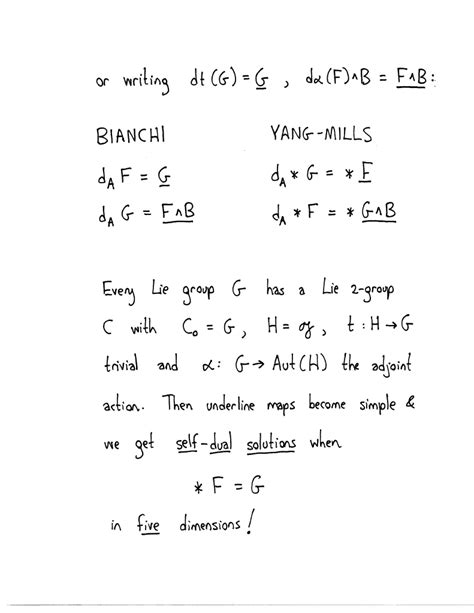 or writing dt(G) = G̲ , dα(F)∧B = F̲∧̲B̲ :
BIANCHI YANG-MILLS
d_A F = G̲ d_A * G = * F̲
d_A G = F̲∧̲B̲ d_A * F = * G̲∧̲B̲
Every Lie group G has a Lie 2-group
C with C₀ = G, H = 𝔤, t : H → G
trivial and α : G → Aut(H) the adjoint
action. Then underline maps become simple &
we get self-dual solutions when
* F = G
in five dimensions!